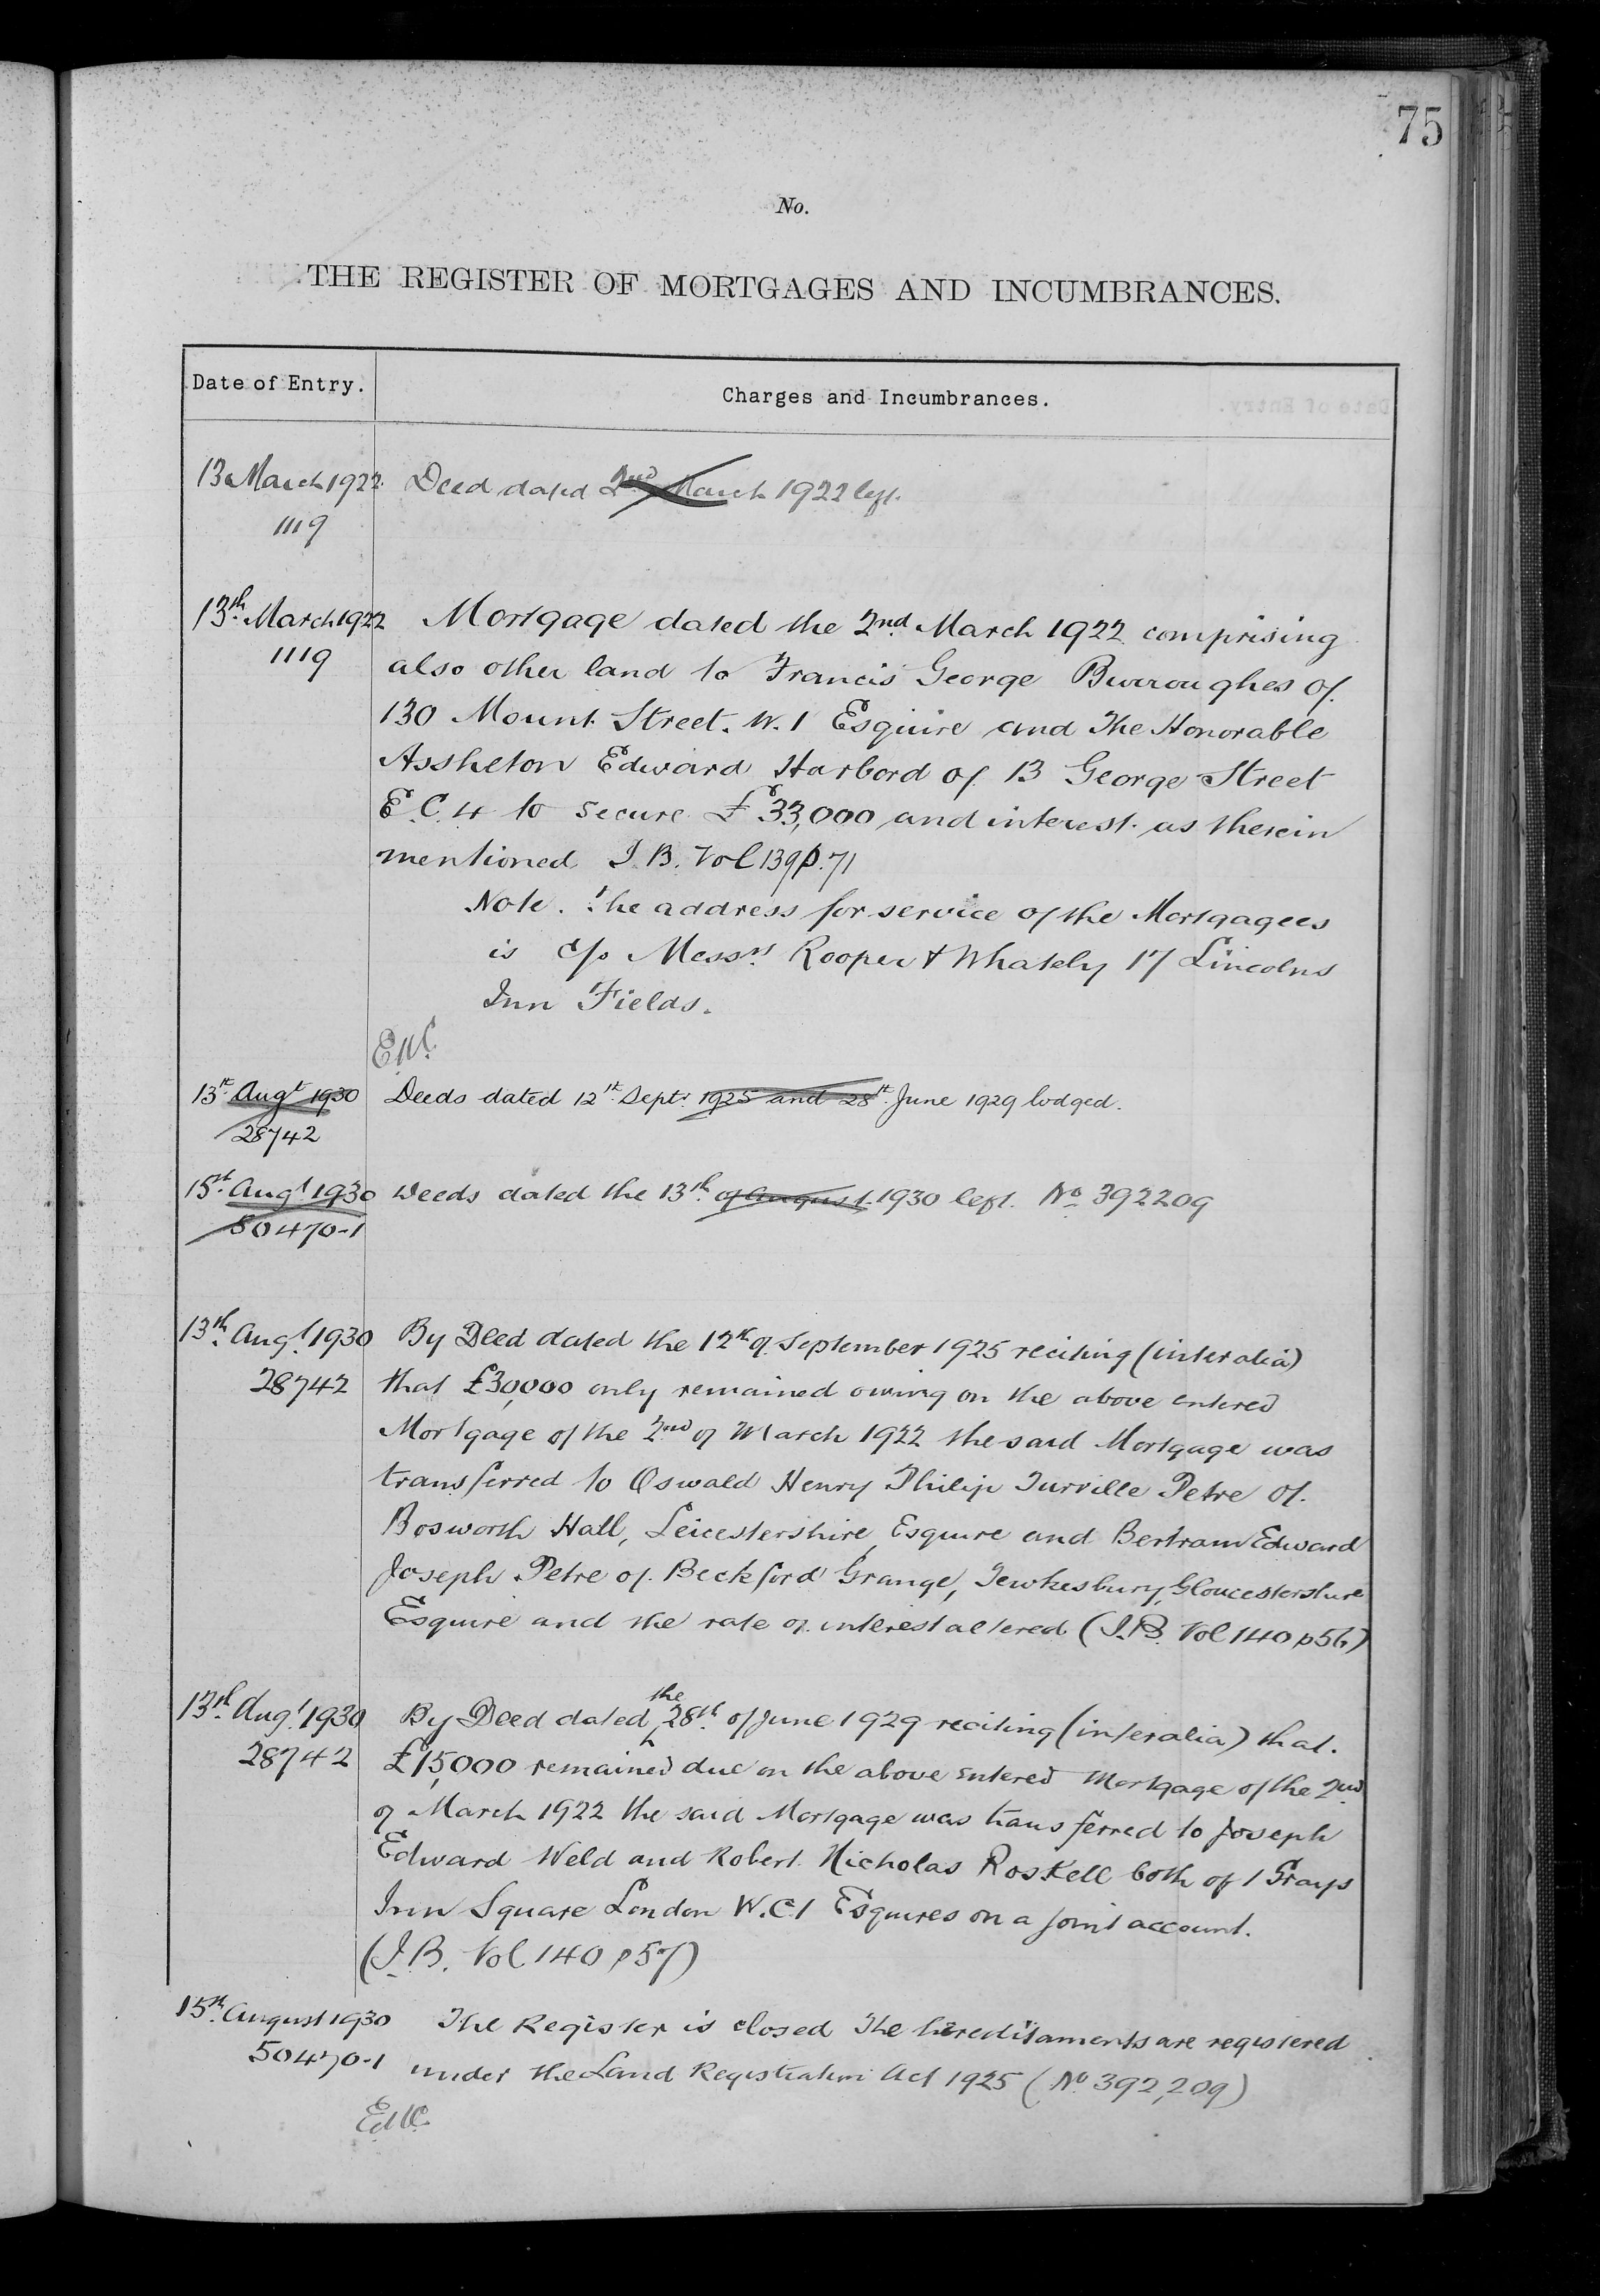 75
No.
THE REGISTER OF MORTGAGES AND INCUMBRANCES.
Date of Entry.
Charges and Incumbrances.
13 March 1922 Deed dated 2nd March 1922 left.
1119
13th March 1922 Mortgage dated the 2nd March 1922 comprising
1119 also other land to Francis George Burroughes of
130 Mount Street. W.1 Esquire and The Honorable
Assheton Edward Harbord of 13 George Street
E.C.4 to secure £33,000 and interest as therein
mentioned I.B. Vol 139 p. 71
Note. The address for service of the Mortgagees
is c/o Messrs Rooper & Whately 17 Lincolns
Inn Fields.
13th Augt 1930 Deeds dated 12th Septr 1925 and 28th June 1929 lodged.
28742
15th Augt 1930 Deeds dated the 13th of August 1930 left. No 392209
50470-1
13th Augt 1930 By Deed dated the 12th of September 1925 reciting (inter alia)
28742 that £30,000 only remained owing on the above entered
Mortgage of the 2nd of March 1922 the said Mortgage was
transferred to Oswald Henry Philip Turville Petre of
Bosworth Hall, Leicestershire, Esquire and Bertram Edward
Joseph Petre of Beckford Grange, Tewkesbury, Gloucestershire
Esquire and the rate of interest altered (I.B. Vol 140 p 56)
13th Augt 1930 By Deed dated the 28th of June 1929 reciting (inter alia) that
28742 £15,000 remained due on the above entered Mortgage of the 2nd
of March 1922 the said Mortgage was transferred to Joseph
Edward Weld and Robert Nicholas Roskell both of 1 Grays
Inn Square London W.C.1 Esquires on a joint account.
(I.B. Vol 140 p 57)
15th August 1930 The Register is closed The hereditaments are registered
50470-1 under the Land Registration Act 1925 (No 392,209)